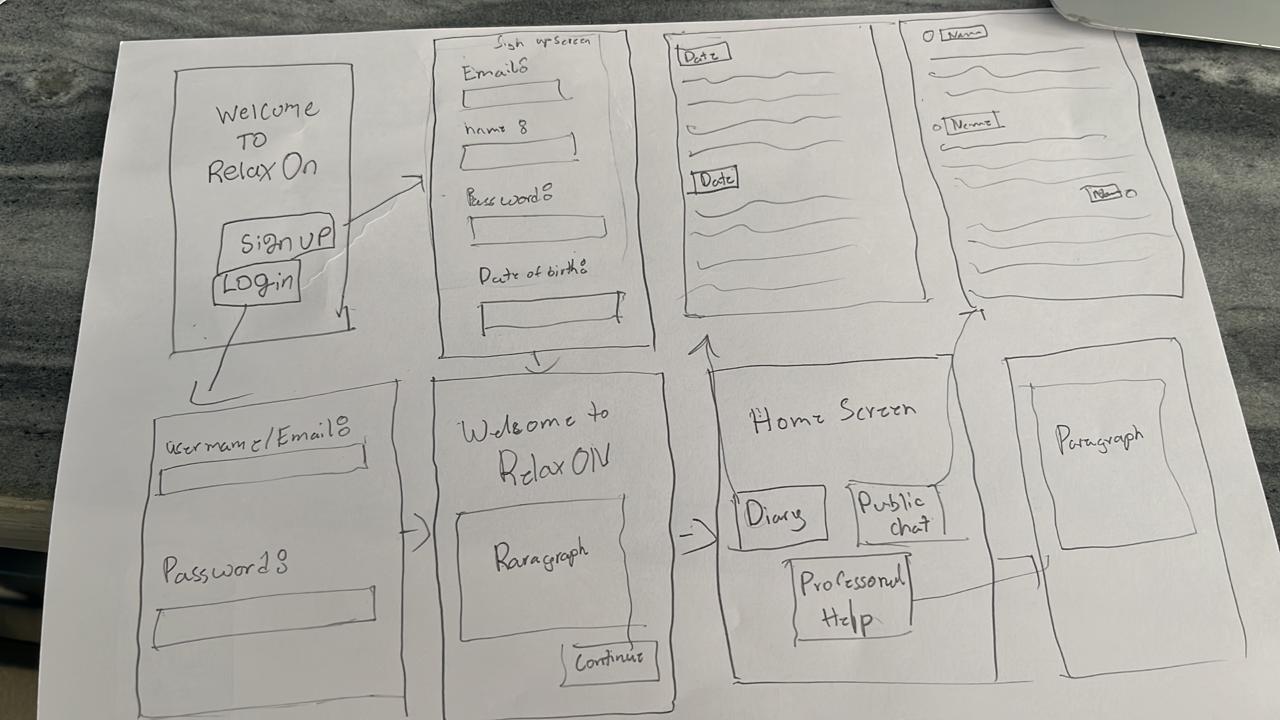 Welcome
TO
Relax On
Sign UP
Login
Sigh up screen
Email:
name :
Password:
Date of birth:
Date
Date
Name
Name
username/Email:
Password:
Welcome to
Relax ON
Paragraph
Continue
Home Screen
Diary
Public
chat
Professonal
Help
Paragraph